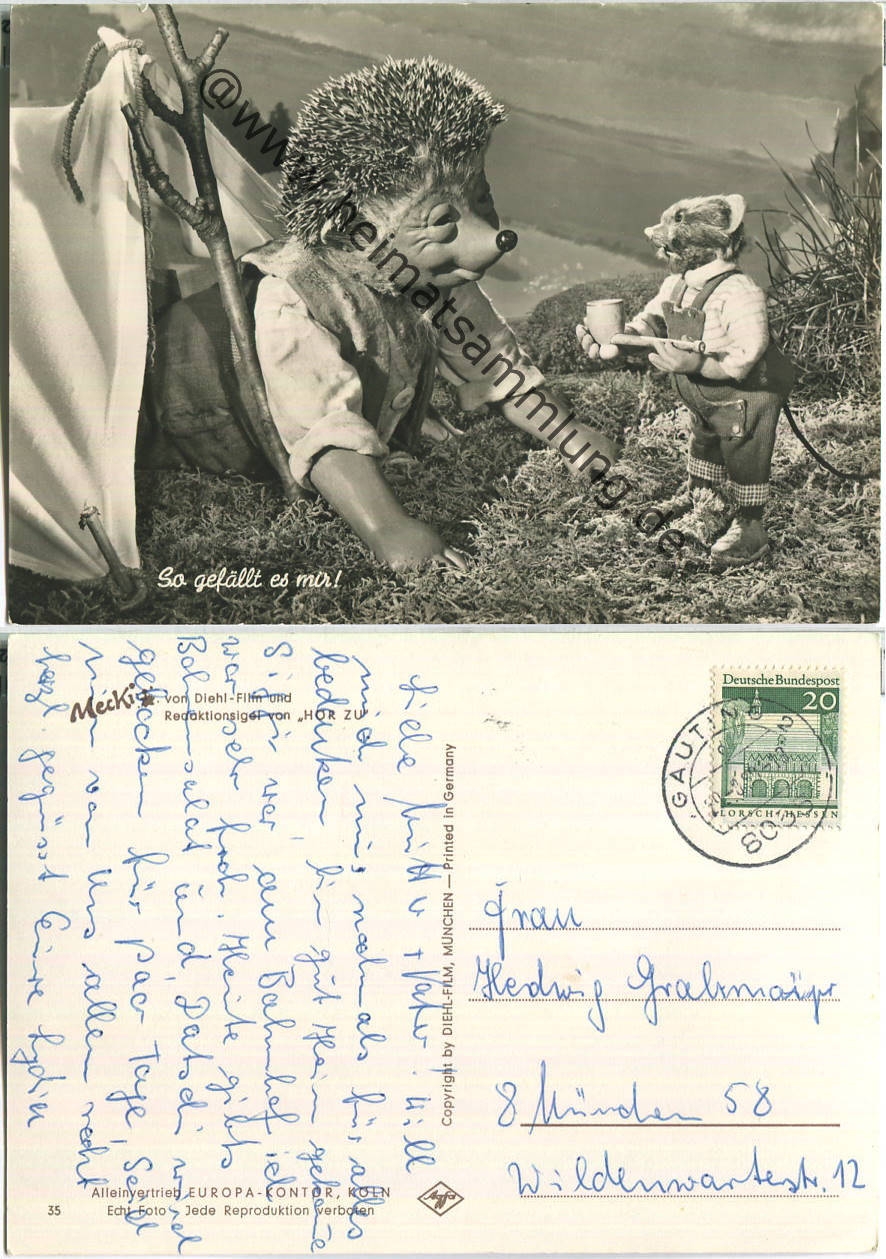 @www.heimatsammlung.de
So gefällt es mir!
Mecki
von Diehl-Film und
Redaktionsigel von „HÖR ZU"
Copyright by DIEHL-FILM, MÜNCHEN — Printed in Germany
Alleinvertrieb EUROPA-KONTOR, KÖLN
35 Echt Foto Jede Reproduktion verboten
Agfa
Deutsche Bundespost
20
LORSCH · HESSEN
GAUTING
8035
Liebe Mutter + Vater! Will
mich nochmals für alles
bedanken, bin gut Heim gekommen
Sigi war am Bahnhof ich
war sehr froh. Heute gibts
Bohnensalat und
für paar Tage, Seid
nun von Uns allen recht
herzl. gegrüsst Eure Lydia
Frau
Hedwig
8 München 58
Wildenwarterstr. 12